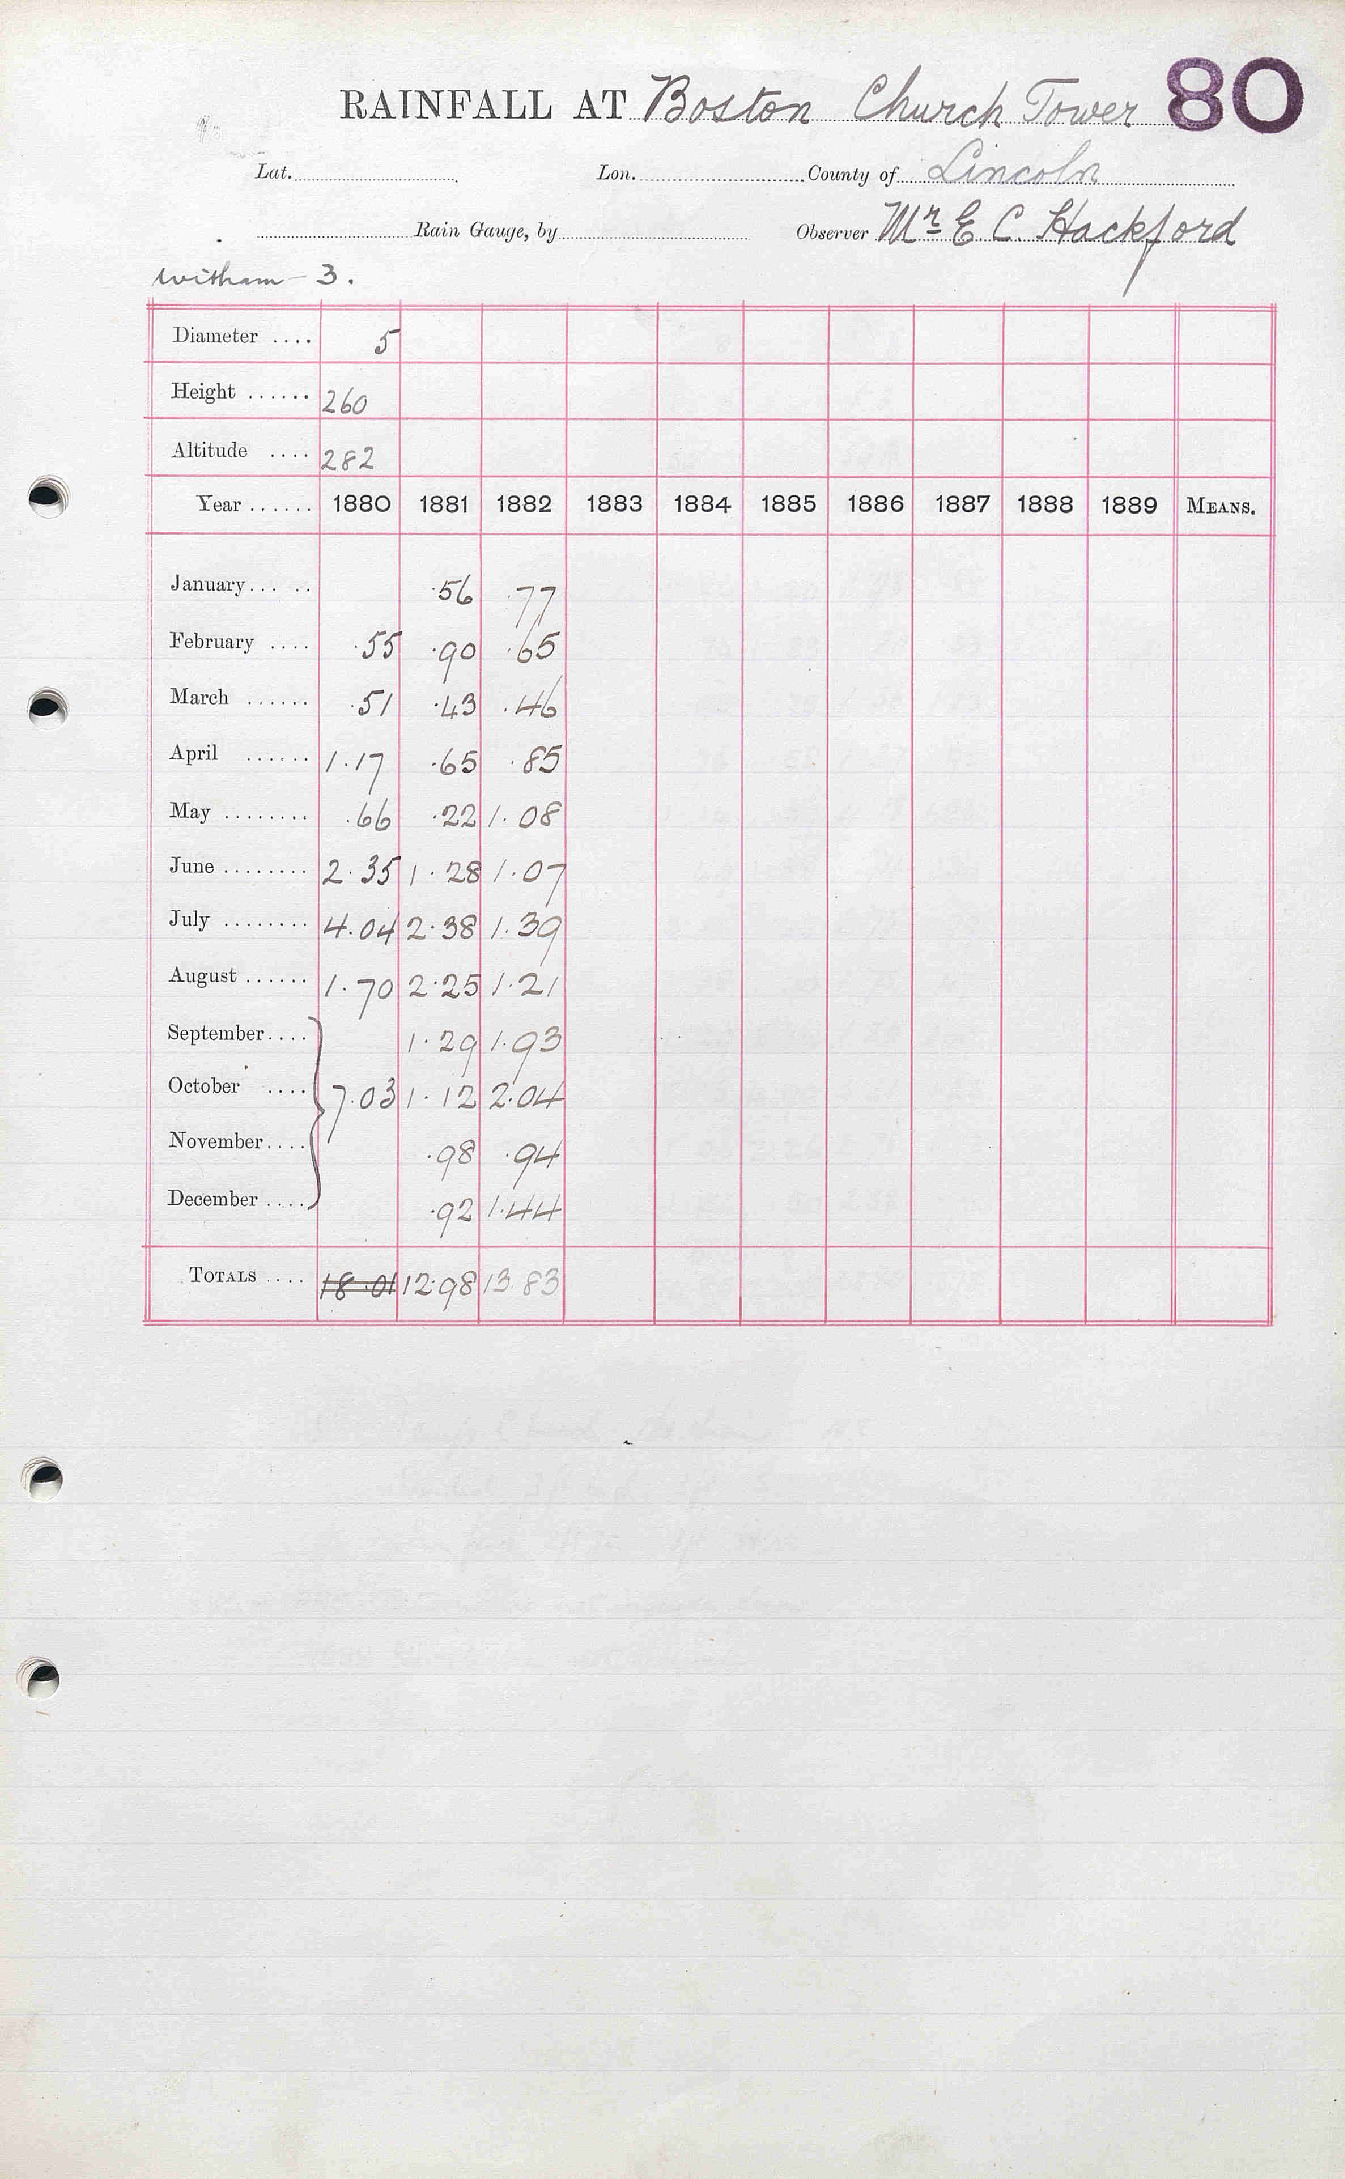 RAINFALL AT Boston Church Tower 80
Lat. Lon. County of Lincoln
Rain Gauge, by Observer Mr E C. Hackford
Witham - 3.
Diameter .... 5
Height ...... 260
Altitude .... 282
Year ...... 1880 1881 1882 1883 1884 1885 1886 1887 1888 1889 MEANS.
January... .. .56 .77
February .... .55 .90 .65
March ...... .51 .43 .46
April ...... 1.17 .65 .85
May ........ .66 .22 1.08
June ........ 2.35 1.28 1.07
July ........ 4.04 2.38 1.39
August ...... 1.70 2.25 1.21
September.... 1.29 1.93
October .... 7.03 1.12 2.04
November.... .98 .94
December .... .92 1.44
TOTALS .... 18.01 12.98 13.83